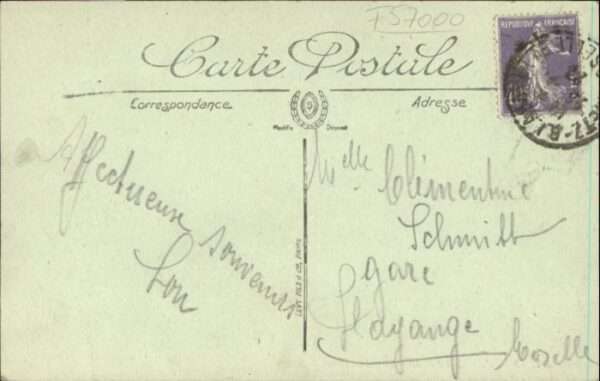 F57000
RÉPUBLIQUE FRANÇAISE
Carte Postale
Correspondance
Adresse
Modèle Déposé
Affectueux souvenirs
Lou
Melle Clémentine
Schmitt
gare
Hayange
Moselle